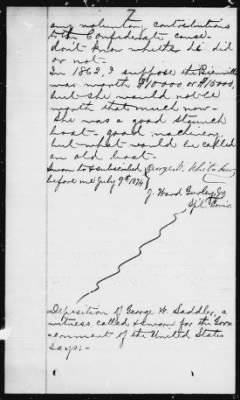 7
any voluntary contributions
to the Confederate cause
don't know whether he did
or not.
In 1862, I suppose the Bienville
was worth $10000 or $15000,
but she would not be
worth that much now.
She was a good staunch
boat - good machinery,
but what would be called
an old boat.
Sworn to & subscribed, George W.
before me July 9th 1874
J. Ward Gurley Jr
Spl Comr
Deposition of George W. Saddler, a
witness called & sworn for the Gov
ernment of the United States
says:-